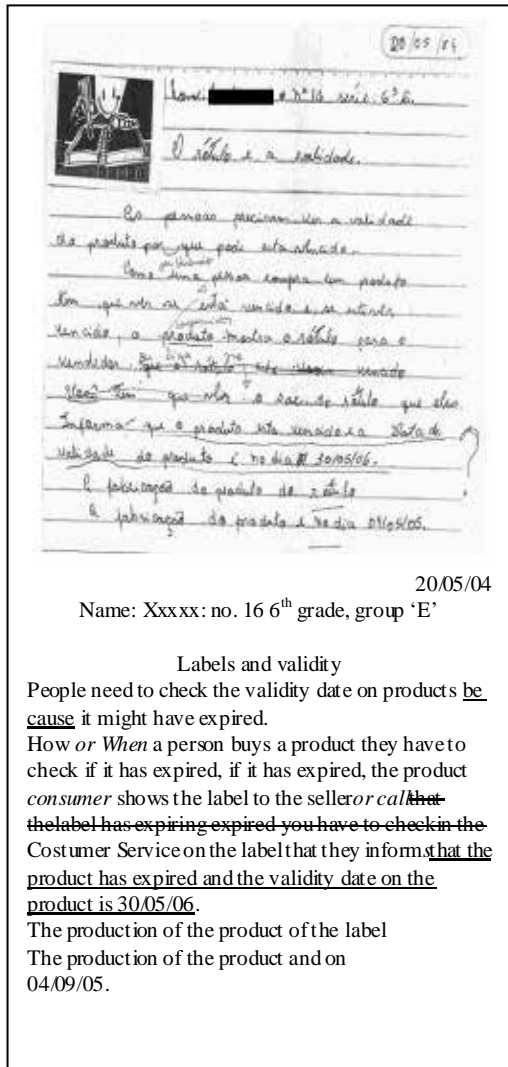 20/05/04
nº 16 série: 6ª E.
O rótulo e a validade.
As pessoas precisam ver a validade
do produto por que pode esta vencido.
Como uma pessoa compra um produto
tem que ver se está vencido e se estiver
vencido, o produto mostra o rótulo para o
vendedor que o rótulo vencido
Você tem que ver o sac do rótulo que eles
Informa que o produto esta vencido e a Data de
validade do produto é no dia 30/05/06.
A fabricação do produto do rótulo
A fabricação do produto é no dia
?
20/05/04
Name: Xxxxx: no. 16 6th grade, group ‘E’
Labels and validity
People need to check the validity date on products be
cause it might have expired.
How or When a person buys a product they have to
check if it has expired, if it has expired, the product
consumer shows the label to the seller or call that
thelabel has expiring expired you have to checkin the
Costumer Service on the label that they informs that the
product has expired and the validity date on the
product is 30/05/06.
The production of the product of the label
The production of the product and on
04/09/05.